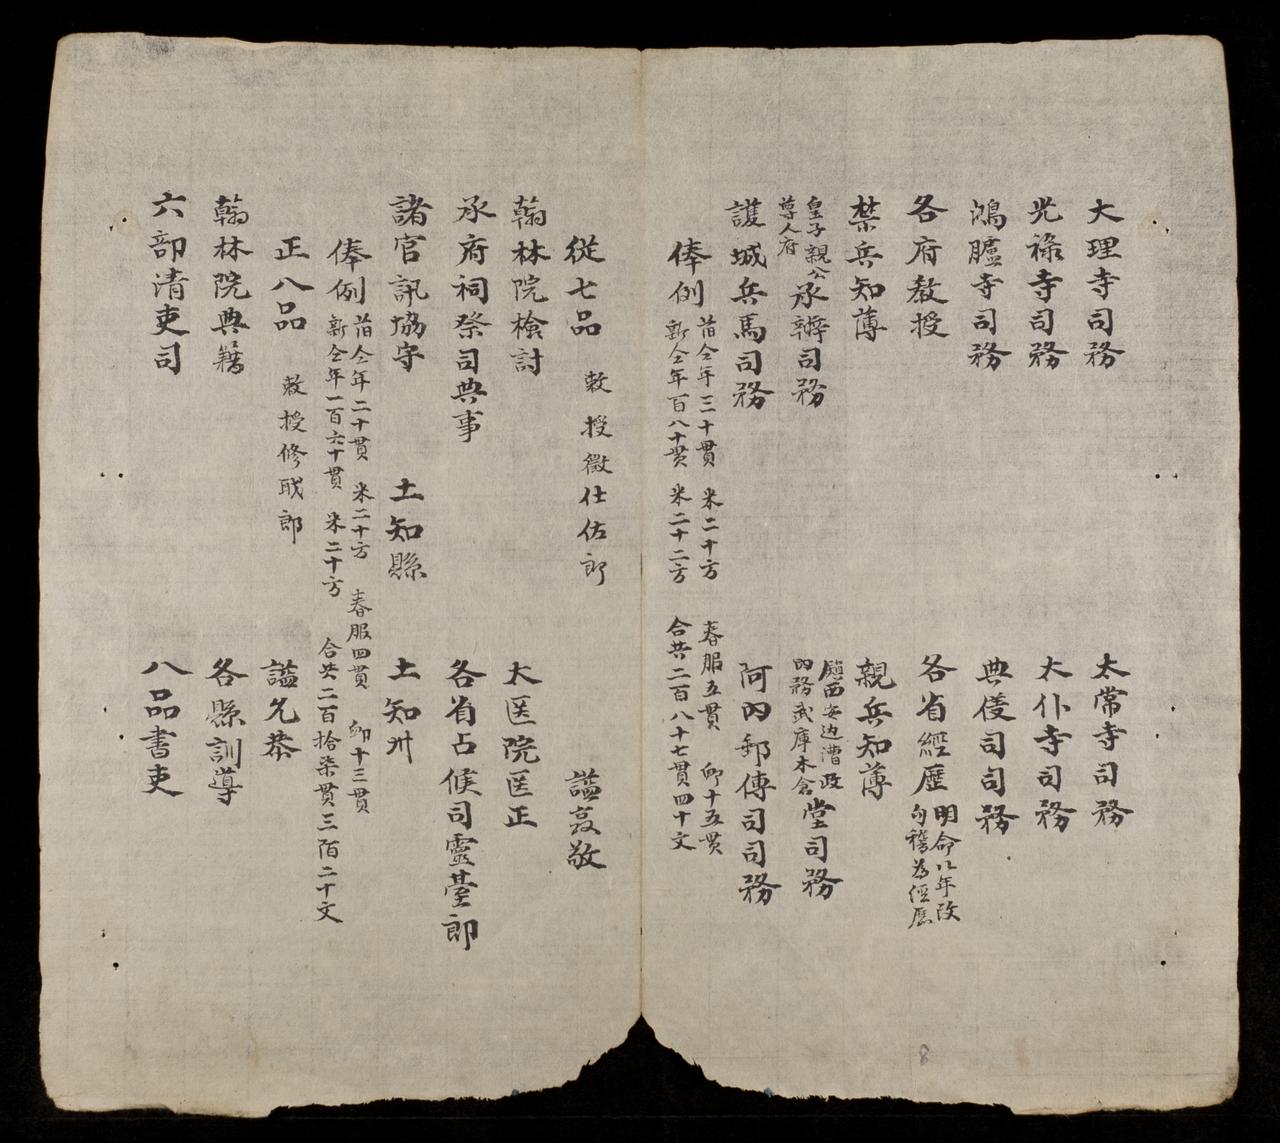 大理寺司務 太常寺司務
光祿寺司務 太仆寺司務
鴻臚寺司務 典儀司司務
各府教授 各省經歷 明命以年改
句稽為經歷
禁兵知薄 親兵知薄
皇子親公
尊人府
承辦司務 鎮西安边漕政
內務武庫木倉
堂司務
護城兵馬司務 阿內郵傳司司務
俸例 昔仝年三十貫 米二十方 春服五貫 卹十五貫
新仝年百八十貫 米二十二方 合共二百八十七貫四十文
從七品 敕授徵仕佐郎 謚恭敬
翰林院檢討 太医院医正
承府祠祭司典事 各省占候司靈臺郎
諸官訊協守 土知縣 土知州
俸例 昔仝年二十貫 米二十方 春服四貫 卹十三貫
新仝年一百六十貫 米二十方 合共二百拾柒貫三陌二十文
正八品 敕授修職郎 謚允恭
翰林院典籍 各縣訓導
六部清吏司 八品書吏
8